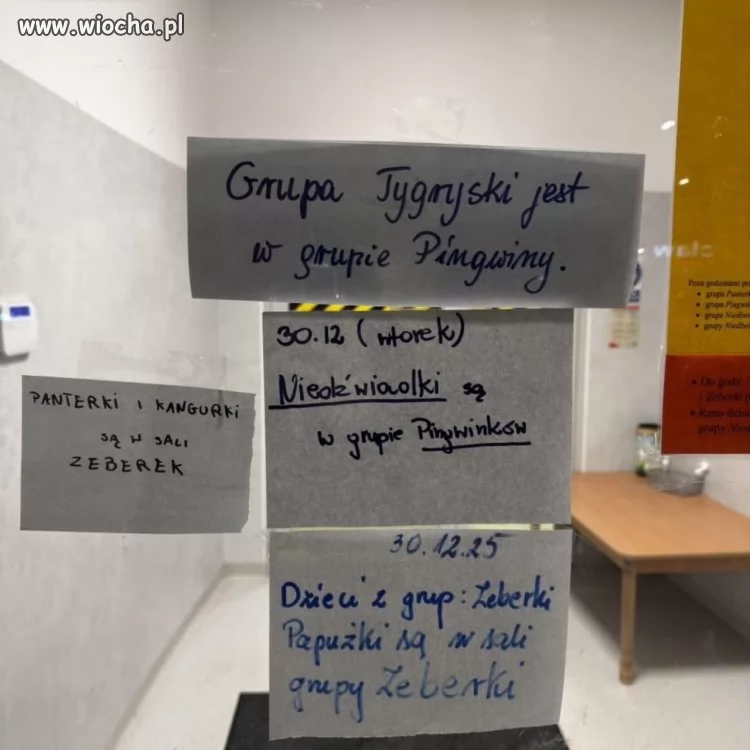 www.wiocha.pl
Grupa Tygryski jest
w grupie Pingwiny.
30.12 (wtorek)
Niedźwiadki są
w grupie Pingwinków
PANTERKI I KANGURKI
SĄ W SALI
ZEBEREK
30.12.25
Dzieci z grup: Zeberki
Papużki są w sali
grupy Zeberki
Poza godzinami
• grupa
• grupa
• grupa
• grupy
• Do godz.
i Zeberki
•
grupy